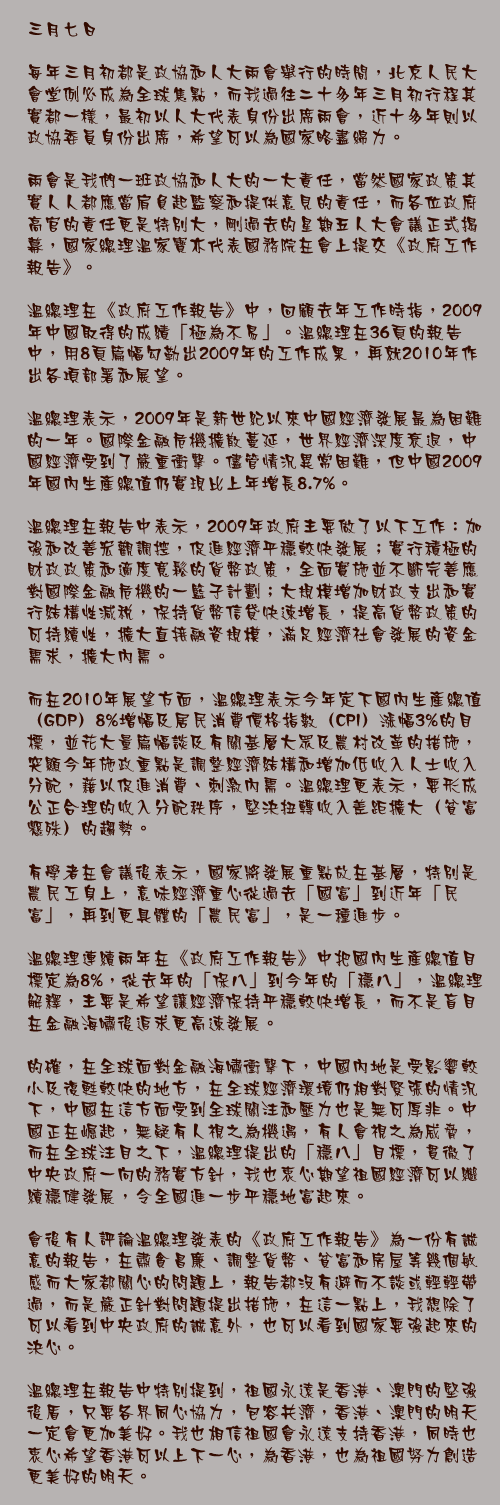 三月七日
每年三月初都是政協和人大兩會舉行的時間，北京人民大
會堂例必成為全球焦點，而我過往二十多年三月初行程其
實都一樣，最初以人大代表身份出席兩會，近十多年則以
政協委員身份出席，希望可以為國家略盡綿力。
兩會是我們一班政協和人大的一大責任，當然國家政策其
實人人都應當肩負起監察和提供意見的責任，而各位政府
高官的責任更是特別大，剛過去的星期五人大會議正式揭
幕，國家總理溫家寶本代表國務院在會上提交《政府工作
報告》。
溫總理在《政府工作報告》中，回顧去年工作時指，2009
年中國取得的成績「極為不易」。溫總理在36頁的報告
中，用8頁篇幅勾勒出2009年的工作成果，再就2010年作
出各項部署和展望。
溫總理表示，2009年是新世紀以來中國經濟發展最為困難
的一年。國際金融危機擴散蔓延，世界經濟深度衰退，中
國經濟受到了嚴重衝擊。儘管情況異常困難，但中國2009
年國內生產總值仍實現比上年增長8.7%。
溫總理在報告中表示，2009年政府主要做了以下工作：加
強和改善宏觀調控，促進經濟平穩較快發展；實行積極的
財政政策和適度寬鬆的貨幣政策，全面實施並不斷完善應
對國際金融危機的一籃子計劃；大規模增加財政支出和實
行結構性減稅，保持貨幣信貸快速增長，提高貨幣政策的
可持續性，擴大直接融資規模，滿足經濟社會發展的資金
需求，擴大內需。
而在2010年展望方面，溫總理表示今年定下國內生產總值
（GDP）8%增幅及居民消費價格指數（CPI）漲幅3%的目
標，並花大量篇幅談及有關基層大眾及農村改革的措施，
突顯今年施政重點是調整經濟結構和增加低收入人士收入
分配，藉以促進消費、刺激內需。溫總理更表示，要形成
公正合理的收入分配秩序，堅決扭轉收入差距擴大（貧富
懸殊）的趨勢。
有學者在會議後表示，國家將發展重點放在基層，特別是
農民工身上，意味經濟重心從過去「國富」到近年「民
富」，再到更具體的「農民富」，是一種進步。
溫總理連續兩年在《政府工作報告》中把國內生產總值目
標定為8%，從去年的「保八」到今年的「穩八」，溫總理
解釋，主要是希望讓經濟保持平穩較快增長，而不是盲目
在金融海嘯後追求更高速發展。
的確，在全球面對金融海嘯衝擊下，中國內地是受影響較
小及復甦較快的地方，在全球經濟環境仍相對緊張的情況
下，中國在這方面受到全球關注和壓力也是無可厚非。中
國正在崛起，無疑有人視之為機遇，有人會視之為威脅，
而在全球注目之下，溫總理提出的「穩八」目標，貫徹了
中央政府一向的務實方針，我也衷心期望祖國經濟可以繼
續穩健發展，令全國進一步平穩地富起來。
會後有人評論溫總理發表的《政府工作報告》為一份有誠
意的報告，在肅貪倡廉、調整貨幣、貧富和房屋等幾個敏
感而大家都關心的問題上，報告都沒有避而不談或輕輕帶
過，而是嚴正針對問題提出措施，在這一點上，我想除了
可以看到中央政府的誠意外，也可以看到國家要強起來的
決心。
溫總理在報告中特別提到，祖國永遠是香港、澳門的堅強
後盾，只要各界同心協力，包容共濟，香港、澳門的明天
一定會更加美好。我也相信祖國會永遠支持香港，同時也
衷心希望香港可以上下一心，為香港，也為祖國努力創造
更美好的明天。